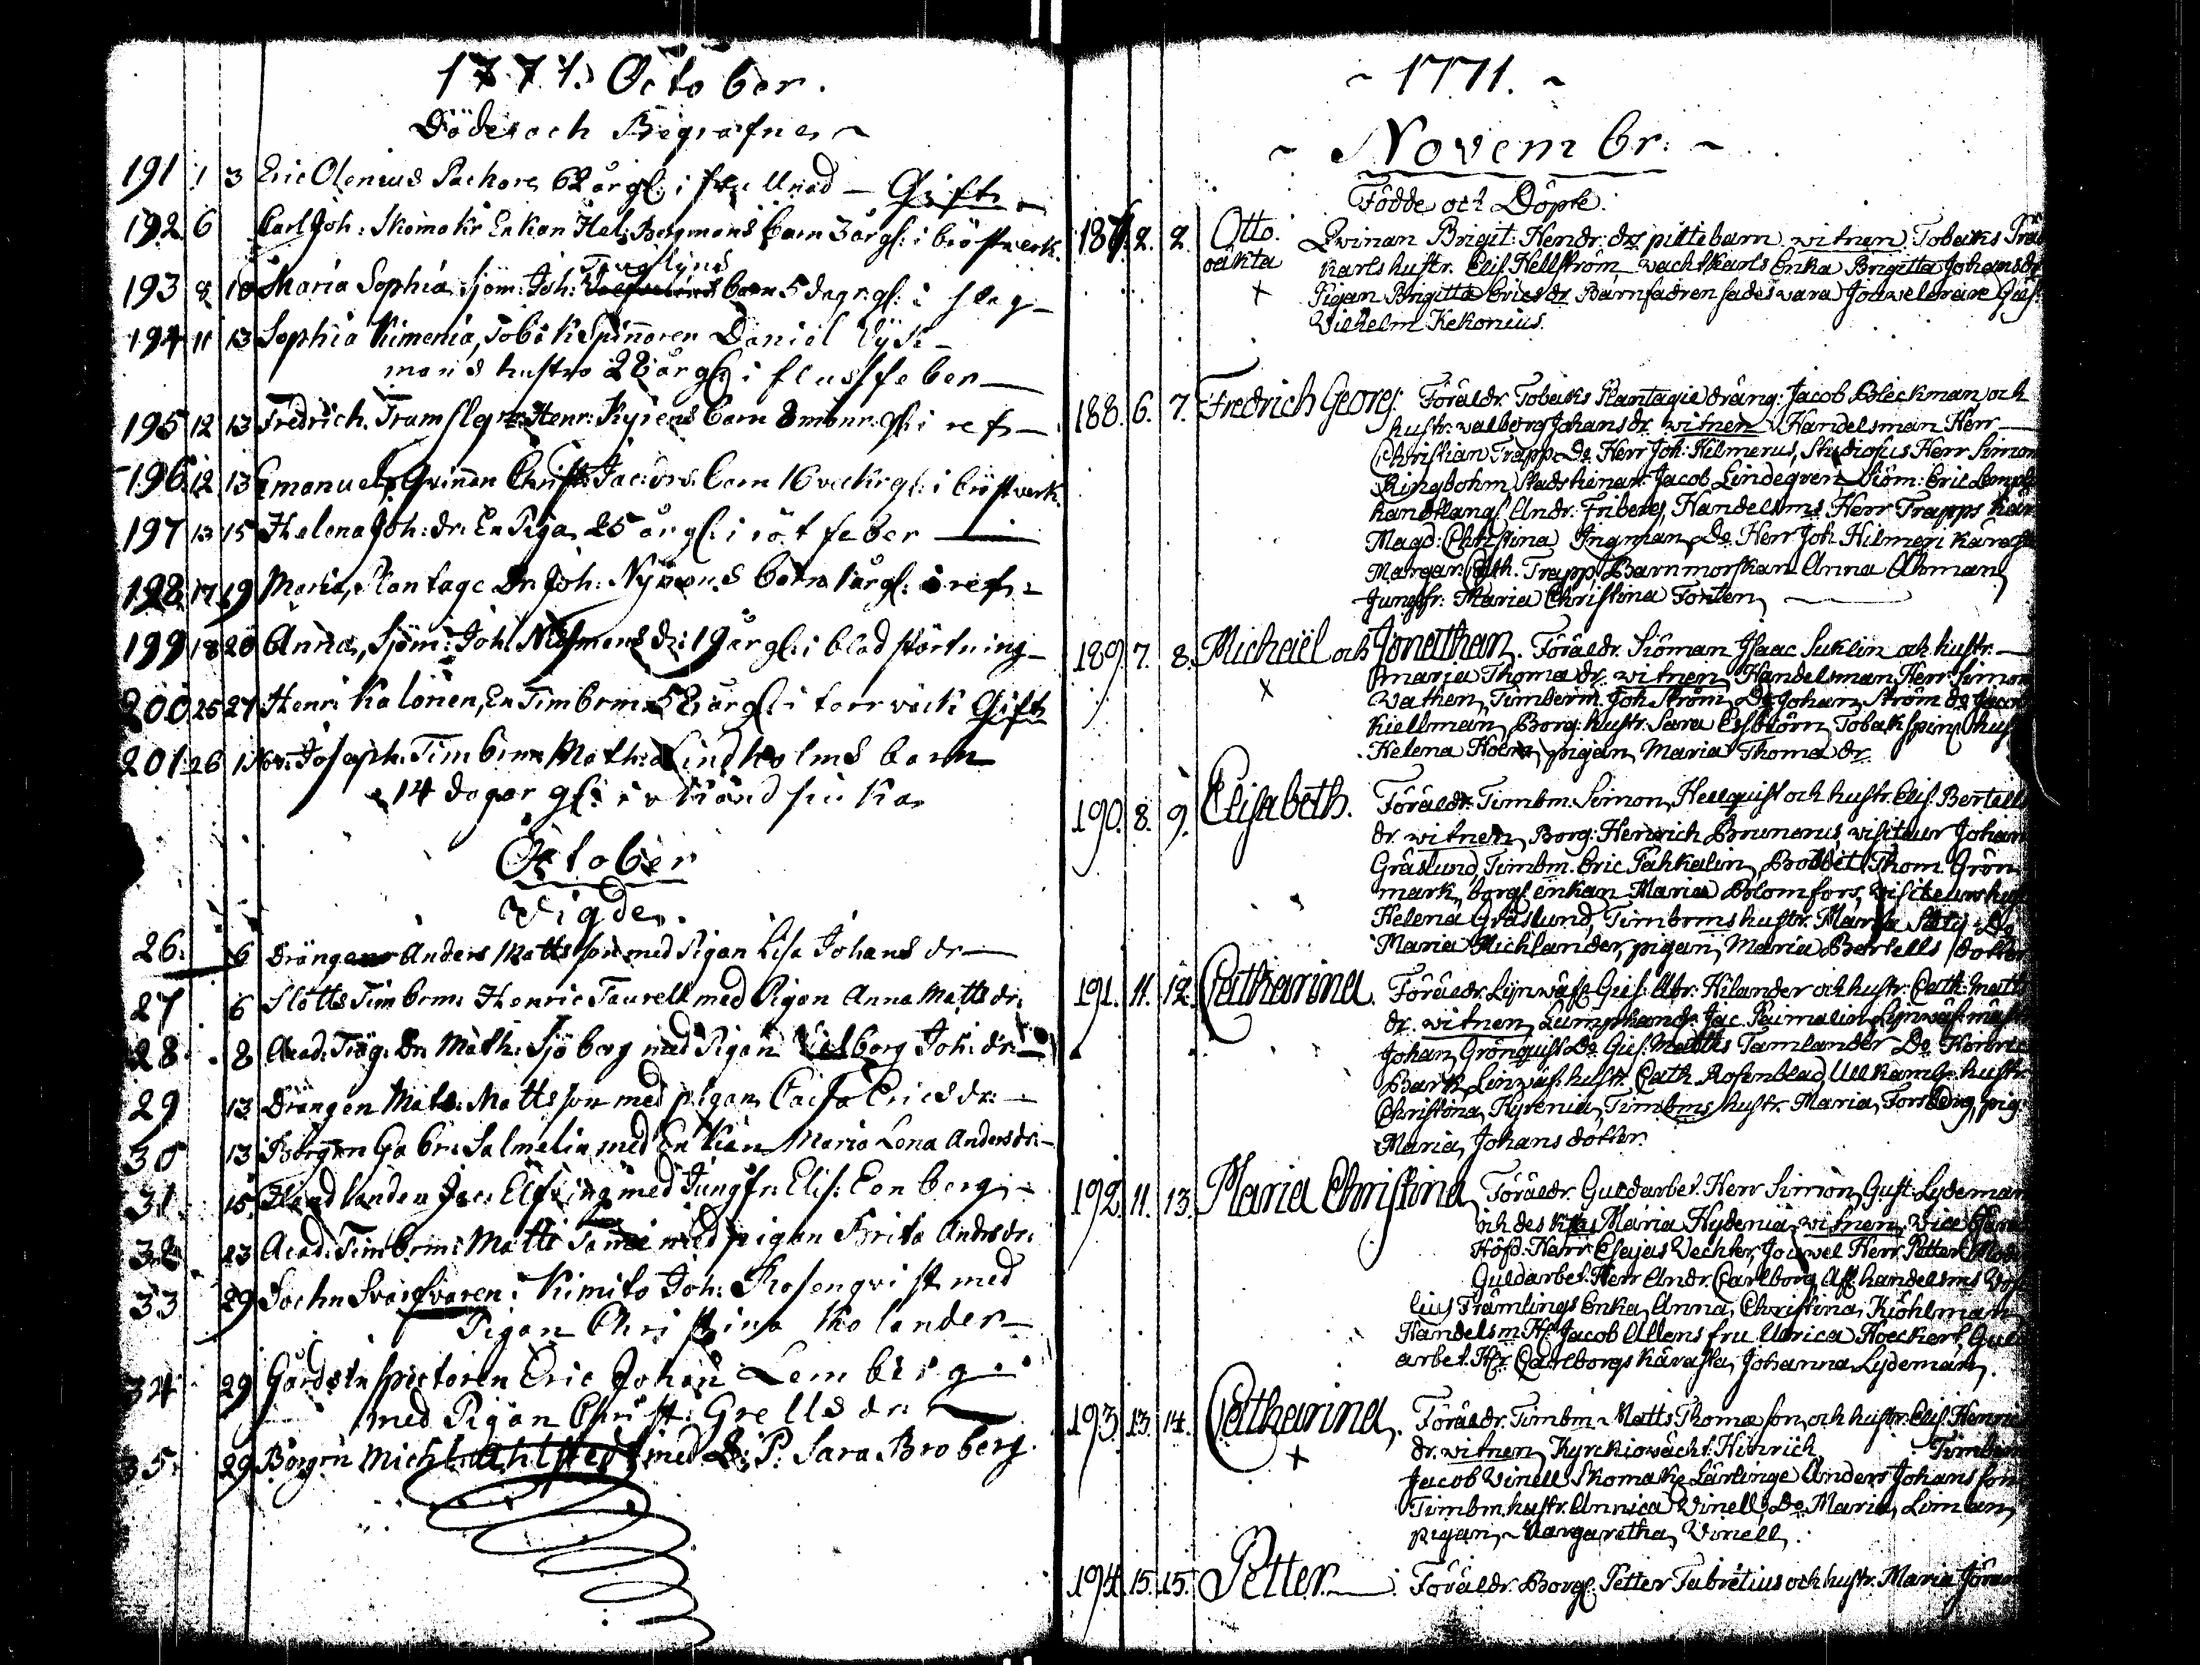 1771. October.
Döde och Begrafne
191 1 3 Eric Olenius Packare 62 år gl: i frellnad — Gift
192 6 Carl Joh: Skomakr Enkan Hel: Bergmans barn 3 år gl: i bröstwerk.
193 8 10 Maria Sophia, Sjöm: Joh: barn 5 dagr gl: i slag —
194 11 13 Sophia Kimenia, Tobaks Spinnaren Daniel Lyk-
mans hustro 28 år gl: i flussfeber —
195 12 13 Fredrich. Henr: Kyrens barn 8 mönr. gl: i ref —
196 12 13 Emanuel, Qvinnan Christ: Jac: drs. barn 16 veckr gl: i bröstverk.
197 13 15 Helena Joh: dr. En Piga 25 år gl: i röt feber —
198 17 19 Maria, Plantage Dr. Joh: Nymans barn 1 år gl: i ref —
199 18 20 Anna, Sjöm: Joh: dr: 19 år gl: i blod störtning —
200 25 27 Henr: Kalonen, En Timberm: 52 år gl: i torrvärk Gift
201 26 1 Nov: Joseph. Timberm Math: Lindholms barn
14 dagar gl: i okiänd siuka
October
Vigde.
26. 6 Drängen Anders Mattsson med Pigan Lisa Johans dr —
27 6 Slotts Timberm: Henric Taurell med Pigan Anna Matts dr:
28 8 Acad: Träg: Dr. Math: Sjöberg med Pigan Valborg Joh: dr: —
29 13 Drängen Mats: Mattsson med pigan Caisa Erics dr: —
30 13 Borgaren Gabr: Salmelin med Enkian Maria Lena Anders dr: —
31 15 Jac: Elfving med Jungfr: Elis: Enberg —
32 23 Acad: Timberm: Matts med pigan Brita Anders dr.
33 29 Sochn Svarfvaren i Kimito Joh: Rosenqvist med
Pigan Christina Kolander —
34 29 Gårds Inspectoren Eric Johan Lemberg
med Pigan Christ: Grells dr: —
35. 29 Borgrn Mich: Ahlstedt med D: P. Sara Broberg.
~ 1771. ~
~ Novembr: ~
Födde och Döpte.
187. 2. 2. Otto. Qvinan Brigit: Hendr: drs pittebarn. witnen Tobaks
oäkta Karls hustr. Elis. Hellström wachtkarls Enka Brigitta Johans dr
+ Pigan Brigitta Erics dr Barnfadren sades wara Jouvelerare
Wilhelm Kekonius.
188. 6. 7. Fredrich Georg. Föräldr. Tobaks Plantagie dräng: Jacob Bleckman och
hustr: walborg Johans dr. witnen Handelsman Herr
Christian Trapp Do. Herr Joh: Hilmerus, Studiosus Herr Simon
Ringbohm Stadstienar: Jacob Lindeqven Siöm: Eric
handtlang Andr: Friberg, Handelsms Herr Trapps
Magd: Christina Ingman, Do. Herr Joh Hilmeri käresta
Margar: Cath. Trapp, Barnmorskan Anna Ahman
Jungfr: Maria Christina Tonten
189. 7. 8. Michaël och Jonathan. Föräldr. Siöman Isaac Suklin och hustr.
+ Maria Thoma dr. witnen Handelsman Herr Simon
Wathen, Timberm. Joh. Ström, Do Johan Ström do
Kiellman, Borg: hustr. Sara Essbiörn, Tobakspin hust
Helena, pigan, Maria Thoma dr.
190. 8. 9. Elisabeth. Föräldr. Timbm. Simon Hellquist och hustr. Elis. Bertills
dr. witnen Borg: Henrich Brunerus, visiteur Johan
Gräslund, Timbm. Eric Pahkalin, Thom. Grön
mark, borgl. enkan Maria Blomfors, visiteurs
Helena Gräslund, Timberms hustr. Do
Maria Michlander, pigan, Maria Bertells dotter
191. 11. 12. Catharina. Föräldr. Linwäf. Gies: Abr: Hilander och hustr: Cath: Matts
dr. witnen Lumphandr: Jac. Linwäf. mäst
Johan Grönquist Do Gies: Matths Tamlander Do
Bark, Linwäf. hustr. Cath Rosenblad, Ullkamb. hustr
Christina Hyrenia, Timbms hustr. Maria Forsberg, pig
Maria, Johans dotter.
192. 11. 13. Maria Christina Föräldr. Guldarbet. Herr Simon Gust: Lydeman
och des k. Maria Hydenia, witnen, Vice
Höfd. Herr Esajas Wechter, Jouvel Herr Petter
Guldarbet. Herr Andr. Carlborg Aff. handelsms
Trämlings Enka, Anna, Christina, Kiöhlman
Handelsm. Hr Jacob Allens fru Ulrica Hoeckert Guld
arbet. Hr Carlborgs kärasta, Johanna Lydeman.
193. 13. 14. Catharina. Föräldr. Timbm. Matts Thomæ son och hustr. Elis. Henric
+ dr. witnen Kyrckiowächt. Hinrich Timberm
Jacob Winell Skomak. Lärlinge Anders Johans son
Timbm. hustr. Annica Winell, Do Maria, Liman,
pigan, Margaretha, Winell.
194. 15. 15. Petter. Föräldr. Borgl. Petter Fabretius och hustr. Maria